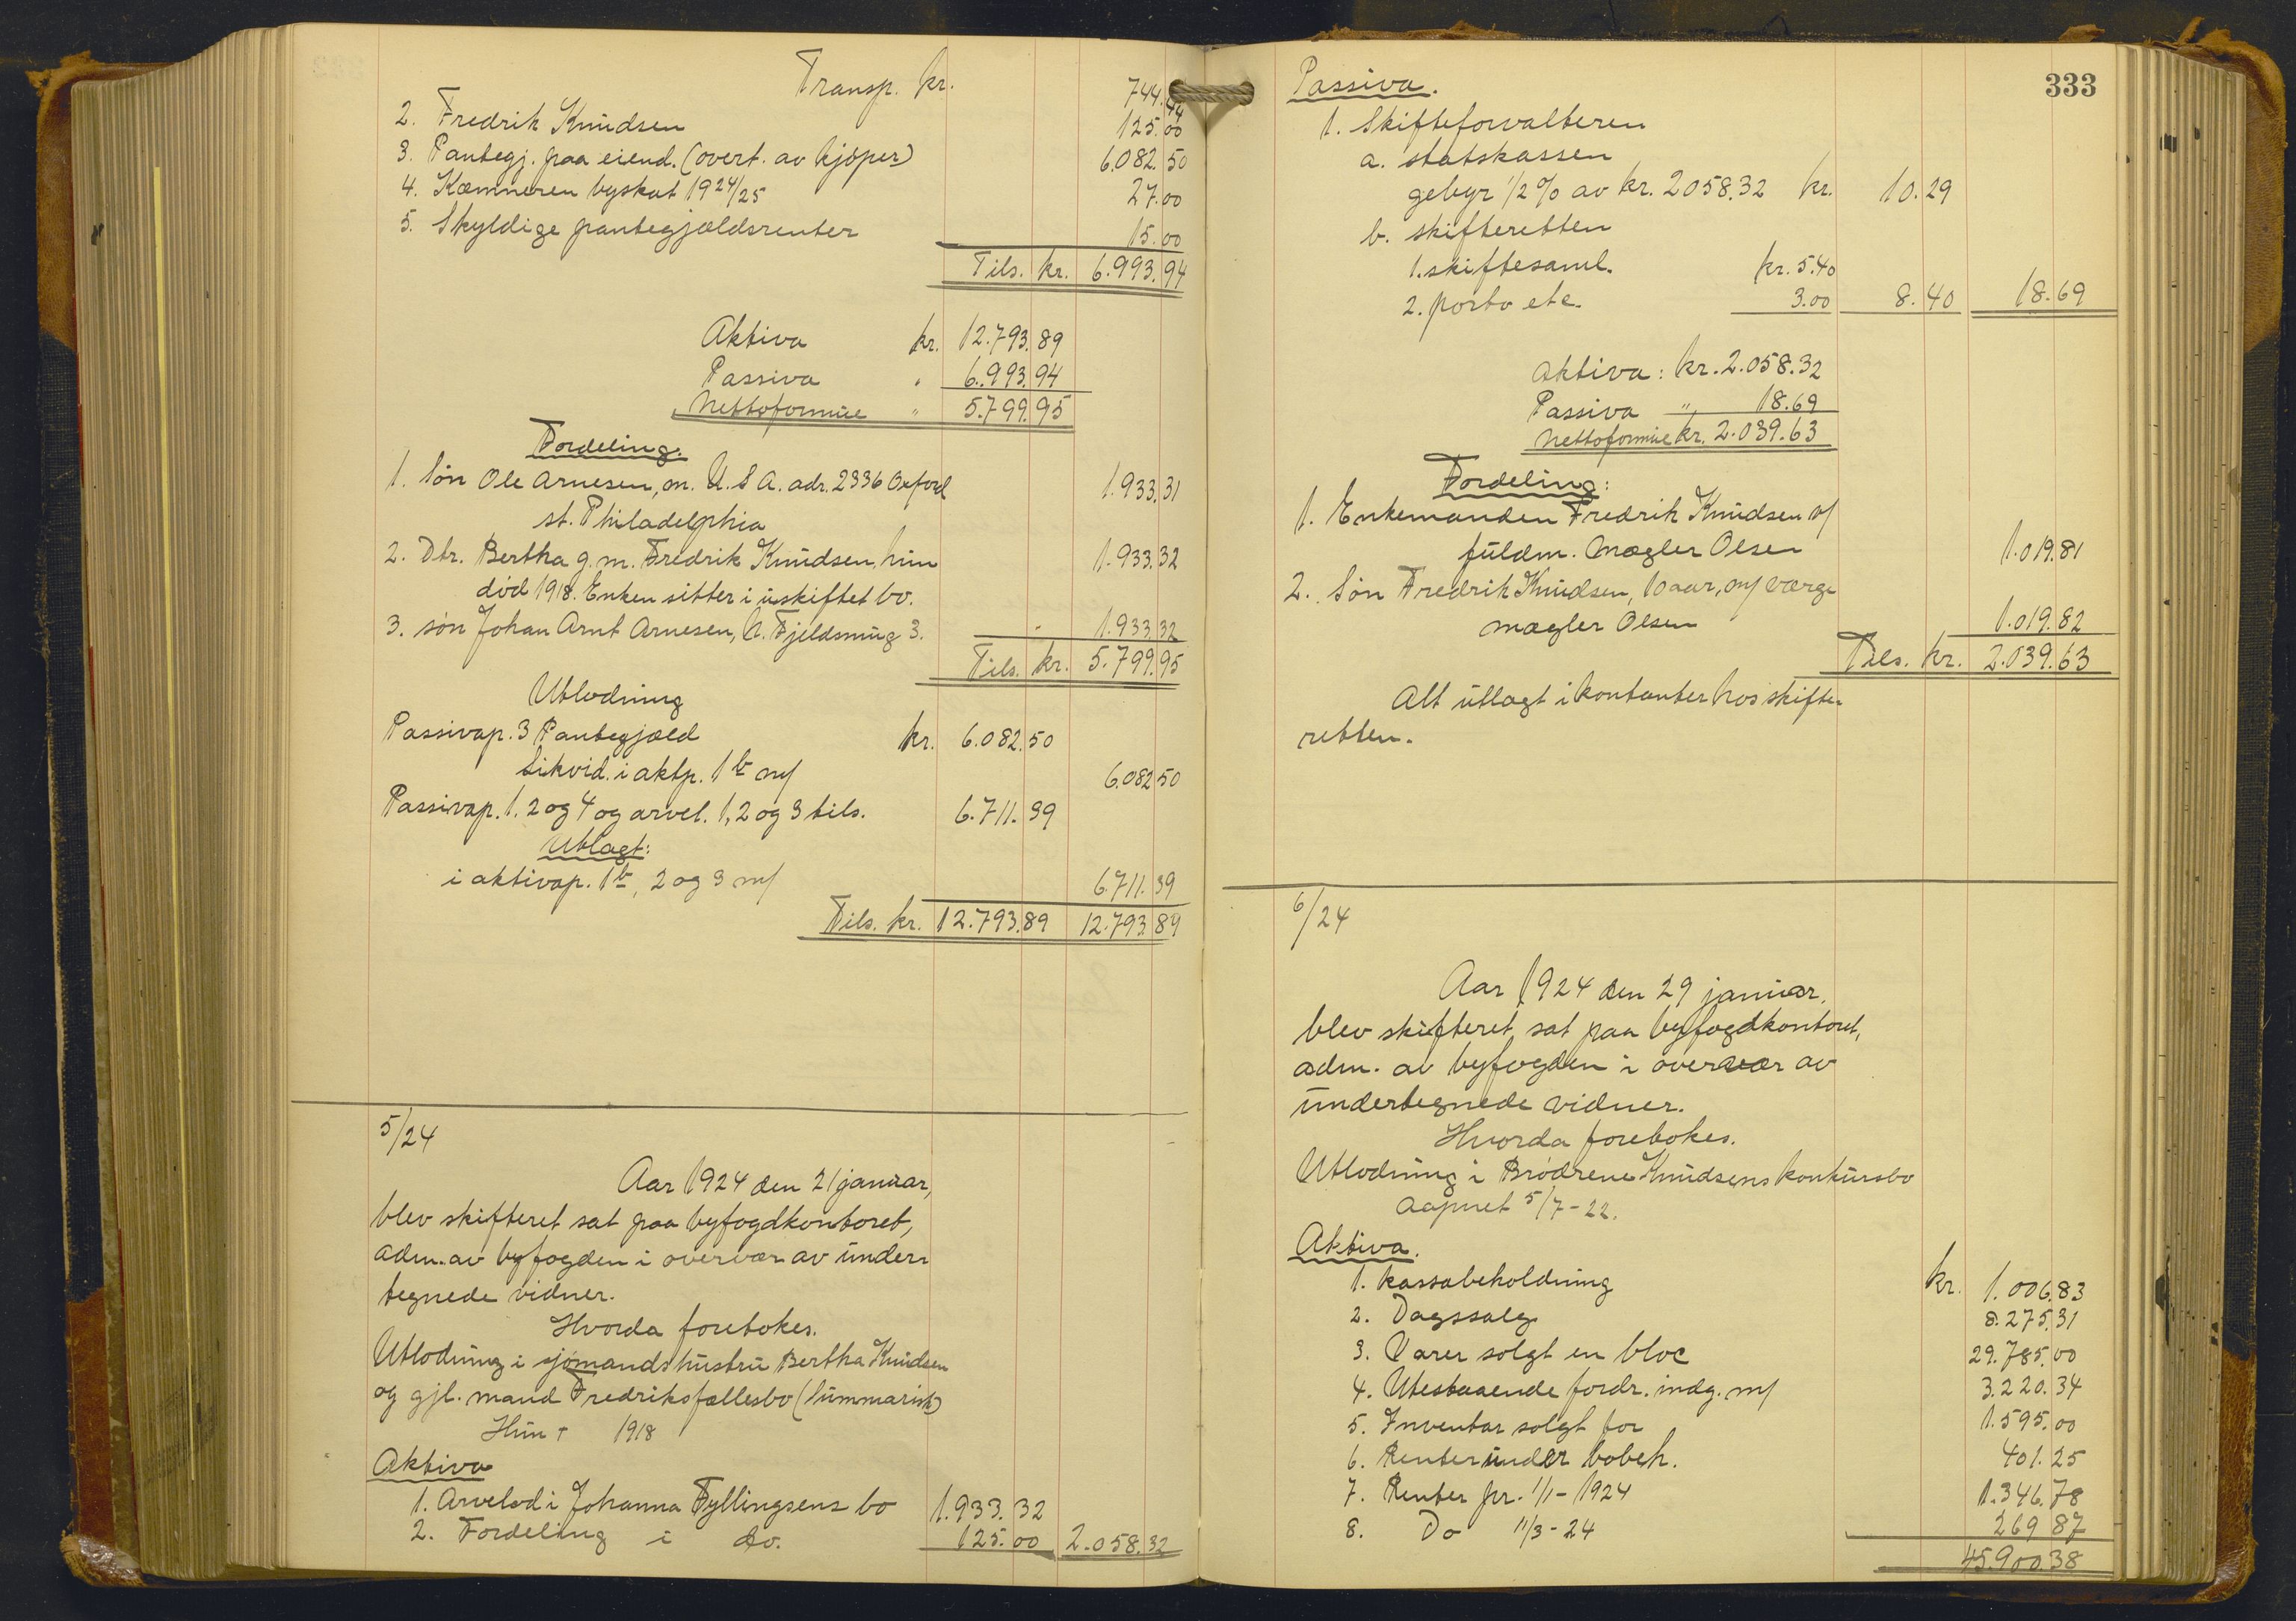 Transp. kr. 744.44
2. Fredrik Knudsen 125.00
3. Pantegj. paa eiend. (overt. av kjøper) 6.082.50
4. Kæmneren byskat 1924/25 27.00
5. Skyldige pantegjældsrenter 15.00
Tils. kr. 6.993.94
Aktiva kr. 12.793.89
Passiva " 6.993.94
Nettoformue " 5.799.95
Fordeling.
1. Søn Ole Arnesen, m. U.S.A. adr. 2336 Oxford 1.933.31
st. Philadelphia
2. Dtr. Bertha g.m. Fredrik Knudsen, hun 1.933.32
død 1918. Enken sitter i uskiftet bo.
3. søn Johan Arnt Arnesen, N. Fjeldsmug 3. " 1.933.32
Tils. kr. 5.799.95
Utlodning
Passivap. 3 Pantegjæld kr. 6.082.50
Likvid. i aktp. 1 b m/ 6.082.50
Passivap. 1, 2 og 4 og arvel. 1, 2 og 3 tils. 6.711.39
Utlagt:
i aktivap. 1 b, 2 og 3 m/ 6.711.39
Tils. kr. 12.793.89 12.793.89
5/24
Aar 1924 den 21 januar,
blev skifteret sat paa byfogdkontoret,
adm. av byfogden i overvær av under-
tegnede vidner.
Hvorda foretokes.
Utlodning i sjømandshustru Bertha Knudsen
og gjl. mand Fredriks fællesbo (Summarisk)
Hun † 1918
Aktiva
1. Arvelod i Johanna Fyllingsens bo 1.933.32
2. Fordeling i do. 125.00 2.058.32
333
Passiva.
1. Skifteforvalteren
a. statskassen
gebyr 1/2 % av kr. 2058.32 kr. 10.29
b. skifteretten
1. skiftesaml. kr. 5.40
2. porto etc. 3.00 8.40 18.69
Aktiva: kr. 2.058.32
Passiva " 18.69
Nettoformue kr. 2.039.63
Fordeling:
1. Enkemanden Fredrik Knudsen v/
fuldm. Mægler Olsen 1.019.81
2. Søn Fredrik Knudsen, 10 aar, m/ værge
mægler Olsen 1.019.82
Tils. kr. 2.039.63
Alt utlagt i kontanter hos skifte-
retten.
6/24
Aar 1924 den 29 januar.
blev skifteret sat paa byfogdkontoret,
adm. av byfogden i overvær av
undertegnede vidner.
Hvorda foretokes.
Utlodning i Brødrene Knudsens konkursbo
aapnet 5/7-22.
Aktiva.
1. kassabeholdning kr. 1.006.83
2. Dagssalg 8.275.31
3. Varer solgt en bloc 29.785.00
4. Utestaaende fordr. indg. m/ 3.220.34
5. Inventar solgt for 1.595.00
6. Renter under bobeh. 401.25
7. Renter pr. 1/1-1924 1.346.78
8. Do 11/3-24 269.87
45.900.38